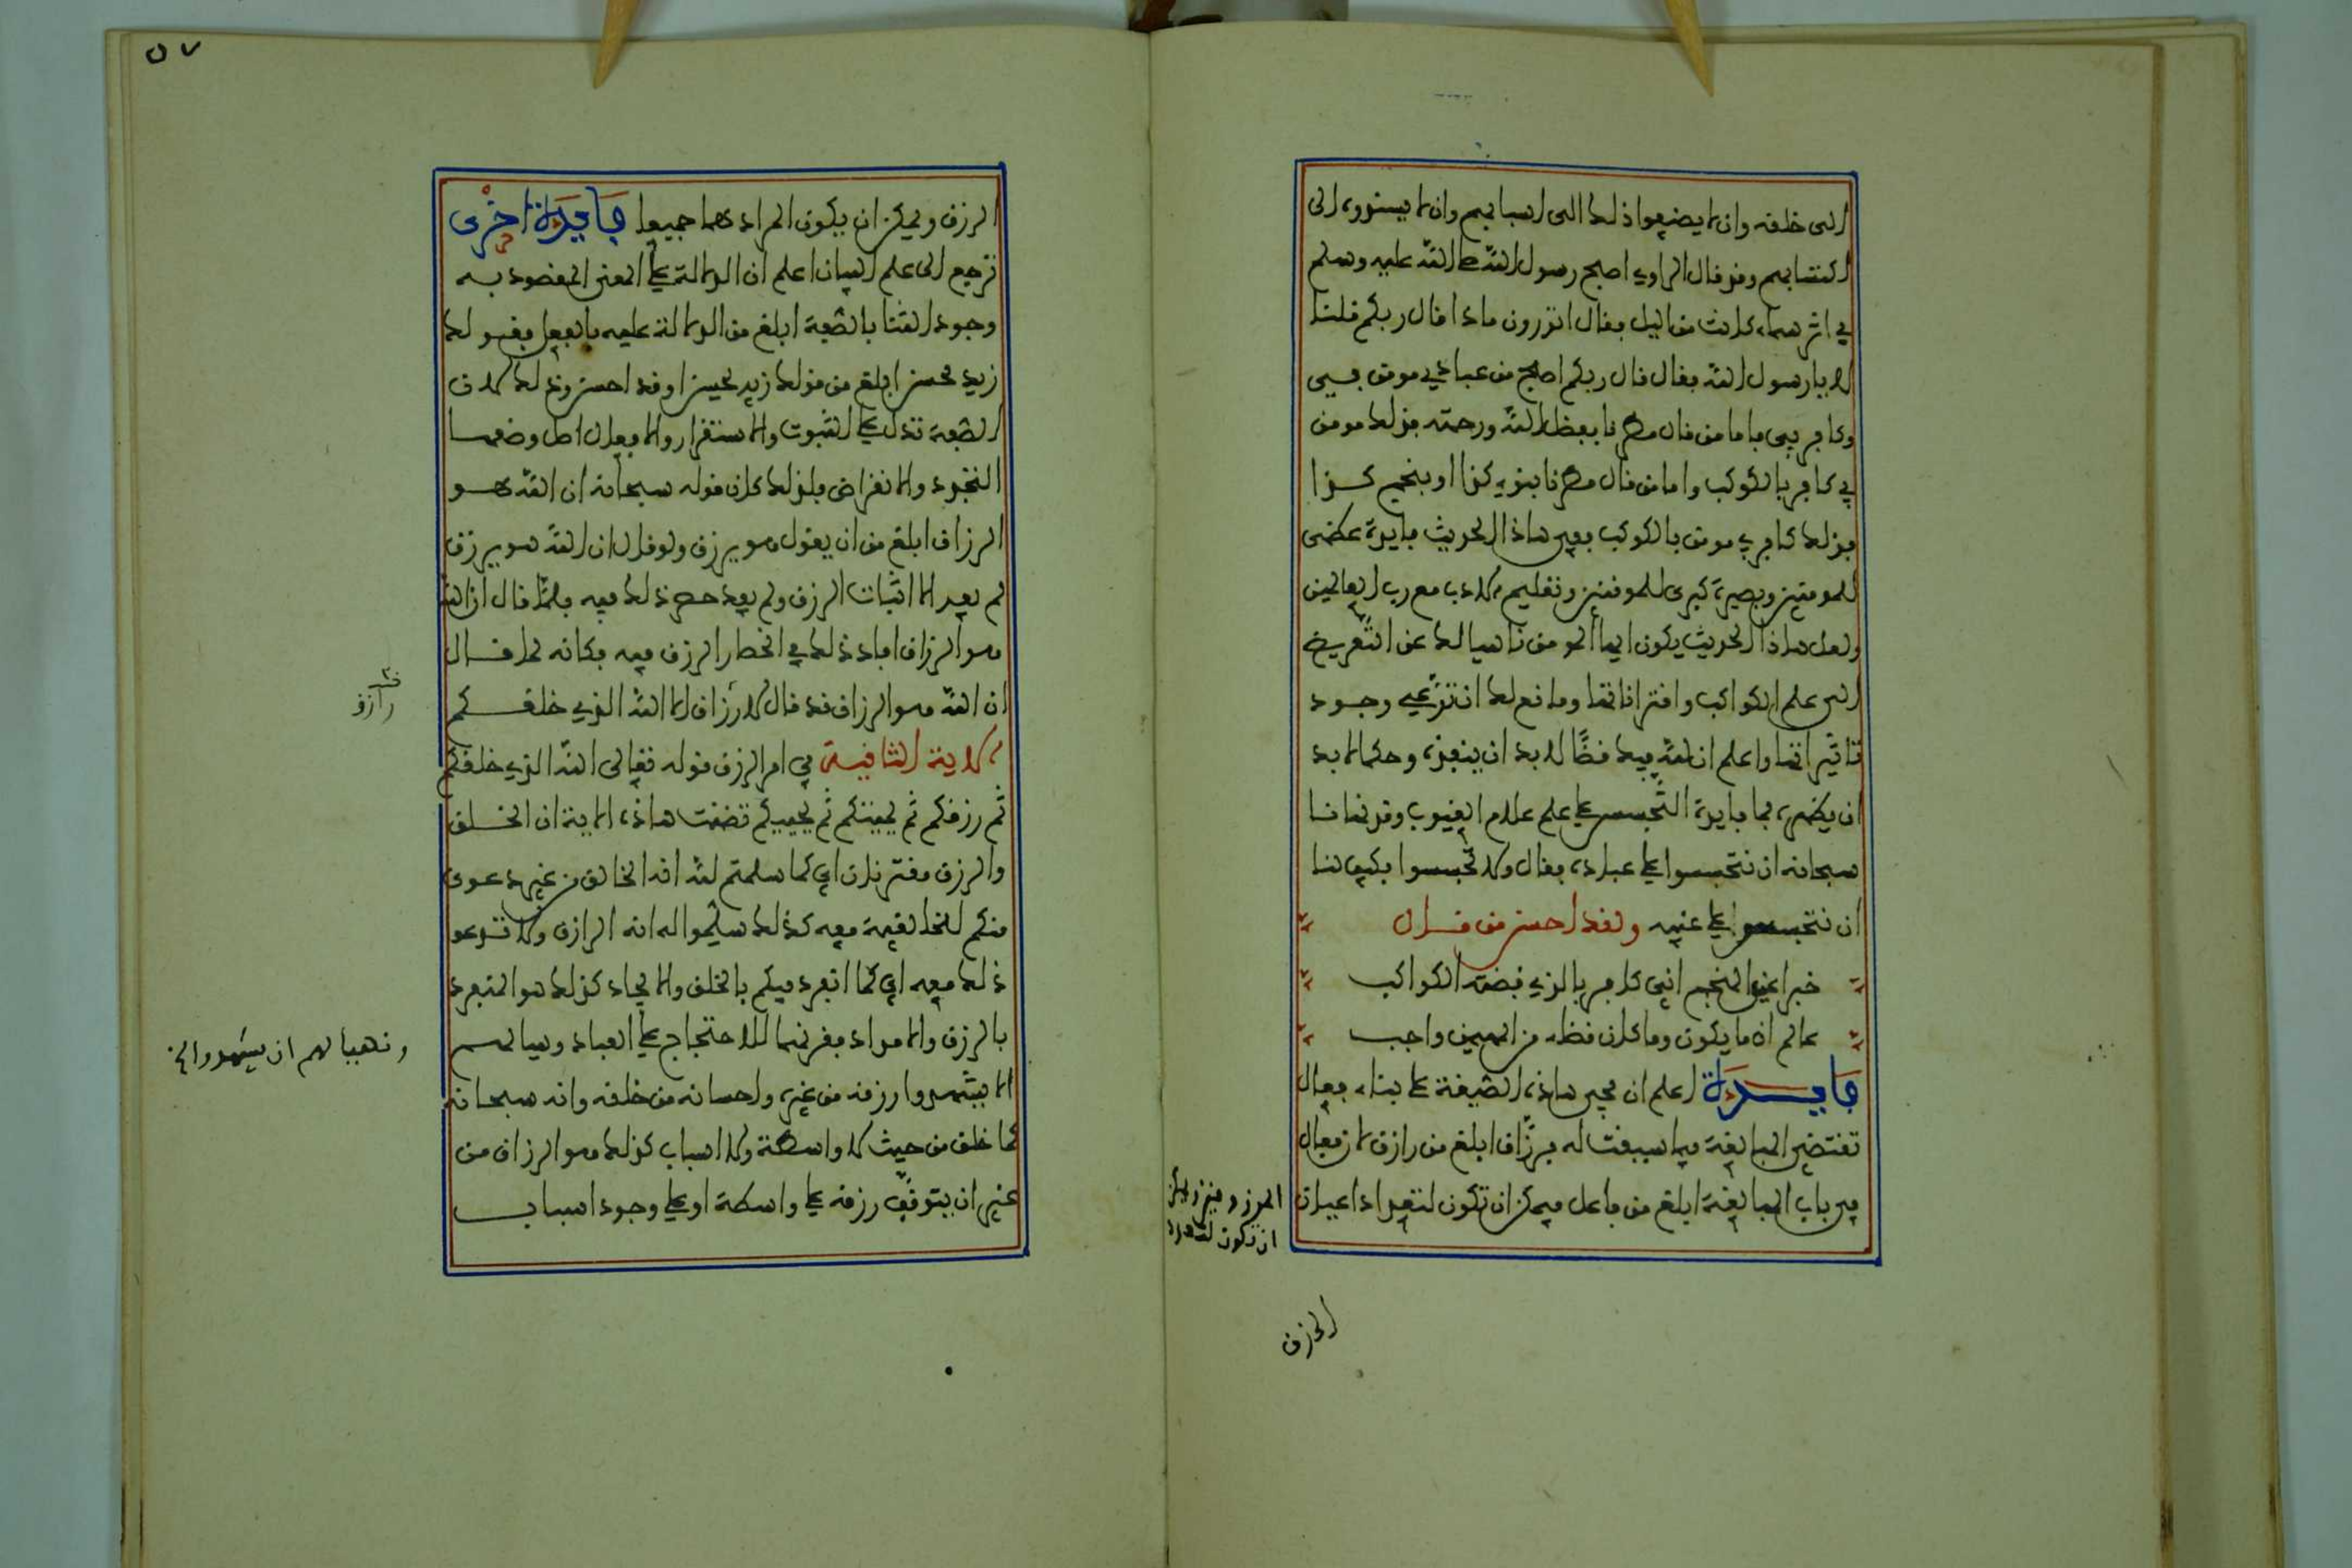 الى خلقه وان لا يضيعوا ذلك الى اسبابهم وان لا يسندوه الى
اكتسابهم وقد قال الراوي اصبح رسول الله صلى الله عليه وسلم
في اثر سماء كانت من اليل فقال اتدرون ماذا قال ربكم قلنا
لا يا رسول الله فقال قال ربكم اصبح من عبادي مومن بي
وكافر بي فاما من قال مطرنا بفضل الله ورحمته فذلك مومن
بي كافر بالكوكب واما من قال مطرنا بنوء كذا او بنجم كذا
فذلك كافر بي مومن بالكوكب ففي هاذا الحديث فايدة عظمى
للمومنين وبصيرة كبرى للموقنين وتعليم الادب مع رب العالمين
ولعل هاذا الحديث يكون ايها المومن ناهيا لك عن التعريض
الى علم الكواكب واقتراناتها ومانع لك ان تدعي وجود
تاثيراتها واعلم ان لله فيك قضا لا بد ان ينفذه وحكما لا بد
ان يظهره فما فايدة التجسس على علم علام الغيوب وقد نهانا
سبحانه ان نتجسس على عباده فقال ولا تجسسوا فكيف لنا
ان نتجسس على غيبه ولقد احسن من قال
خبرا عني المنجم اني كافر بالذي قضته الكواكب
عالم ان ما يكون وما كان قظاء من المهيمن واجب
فايدة اعلم ان مجي هاذه الصيغة على بناء فعال
تقتضي المبالغة فيما سيقت له فرزاق ابلغ من رازق لان فعال
في باب المبالغة ابلغ من فاعل فيمكن ان تكون لتعداد اعيان
ان تكون لتعدد
الرزق
٥٧
الرزق ويمكن ان يكون المراد هما جميعا فايدة اخرى
ترجع الى علم البيان اعلم ان الدلالة على المعنى المقصود به
وجود الثنا بالصفة ابلغ من الدلالة عليه بالفعل فقولك
زيد محسن ابلغ من قولك زيد يحسن او قد احسن وذلك لان
الصفة تدل على الثبوت والاستقرار والافعال اصل وضعها
التجدد والانقراض فلذلك كان قوله سبحانه ان الله هو
الرزاق ابلغ من ان يقول هو يرزق ولو قال ان الله هو يرزق
لم يفد الا اثبات الرزق ولم يفد حصر ذلك فيه فلما قال ان الله
هو الرزاق افاد ذلك في انحصار الرزق فيه فكانه لما قال
ان الله هو الرزاق قد قال لا رزاق الا الله الذي خلقكم
رازق
الاية الثانية في امر الرزق قوله تعالى الله الذي خلقكم
ثم رزقكم ثم يميتكم ثم يحييكم تضمنت هاذه الاية ان الخلق
والرزق مقترنان اي كما سلمتم لله انه الخالق من غير دعوى
منكم للخالقية معه كذلك سلموا له انه الرازق ولا تدعو
ذلك معه اي كما انفرد فيكم بالخلق والايجاد كذلك هو المنفرد
بالرزق والامداد فقرنهما للاحتجاج على العباد
ونهيا لهم ان يشهدوا الخ
الا يشهدوا رزقه من غيره واحسانه من خلقه وانه سبحانه
كما خلق من حيث لا واسطة ولا اسباب كذلك هو الرزاق من
غير ان يتوقف رزقه على واسطة او على وجود اسباب